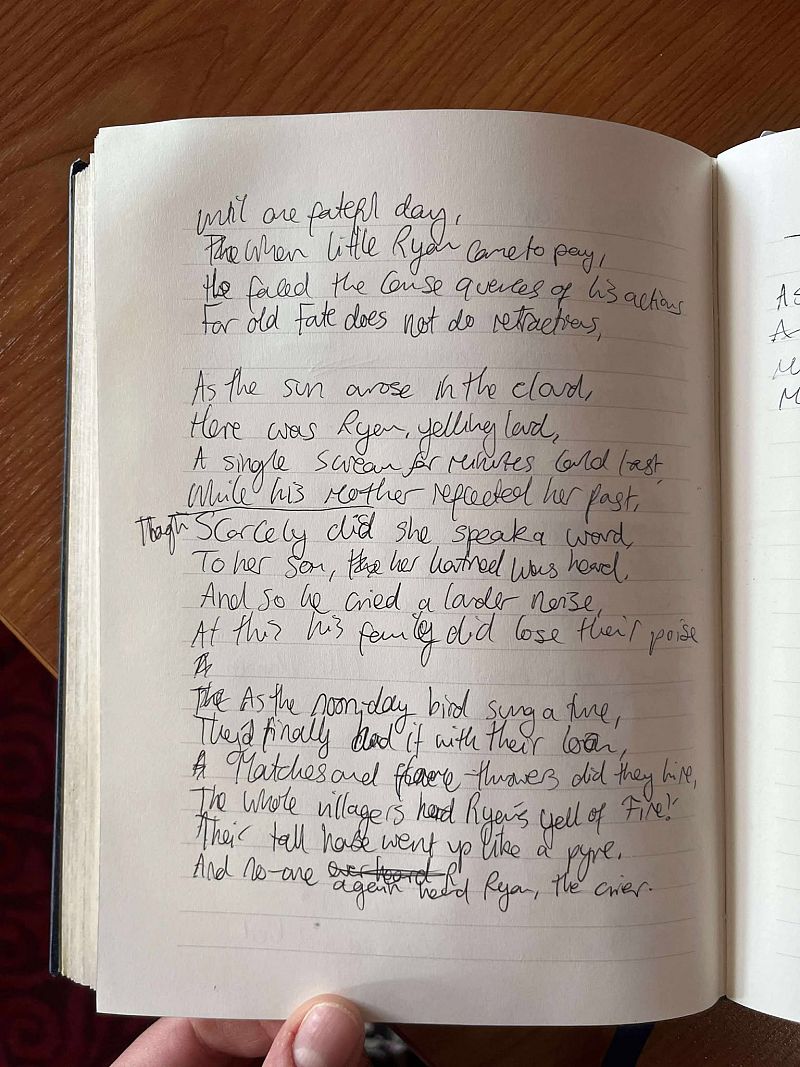 until one fateful day,
The When little Ryan came to pay,
He faced the Conse quences of his actions
For old Fate does not do retractions,
As the sun arose in the cloud,
Here was Ryan, yelling loud,
A single scream for minutes could last,
While his Mother reflected her past,
Though Scarcely did she speak a word,
To her son, her hatred was heard,
And so he cried a louder noise,
At this his family did lose their poise
A
The As the noon-day bird sung a tune,
They'd finally had it with their loon,
A Matches and flame-throwers did they hire,
The whole village is heard Ryan's yell of 'Fire!'
Their tall house went up like a pyre.
And no-one overheard
again heard Ryan, the crier.
AS
A
M
M